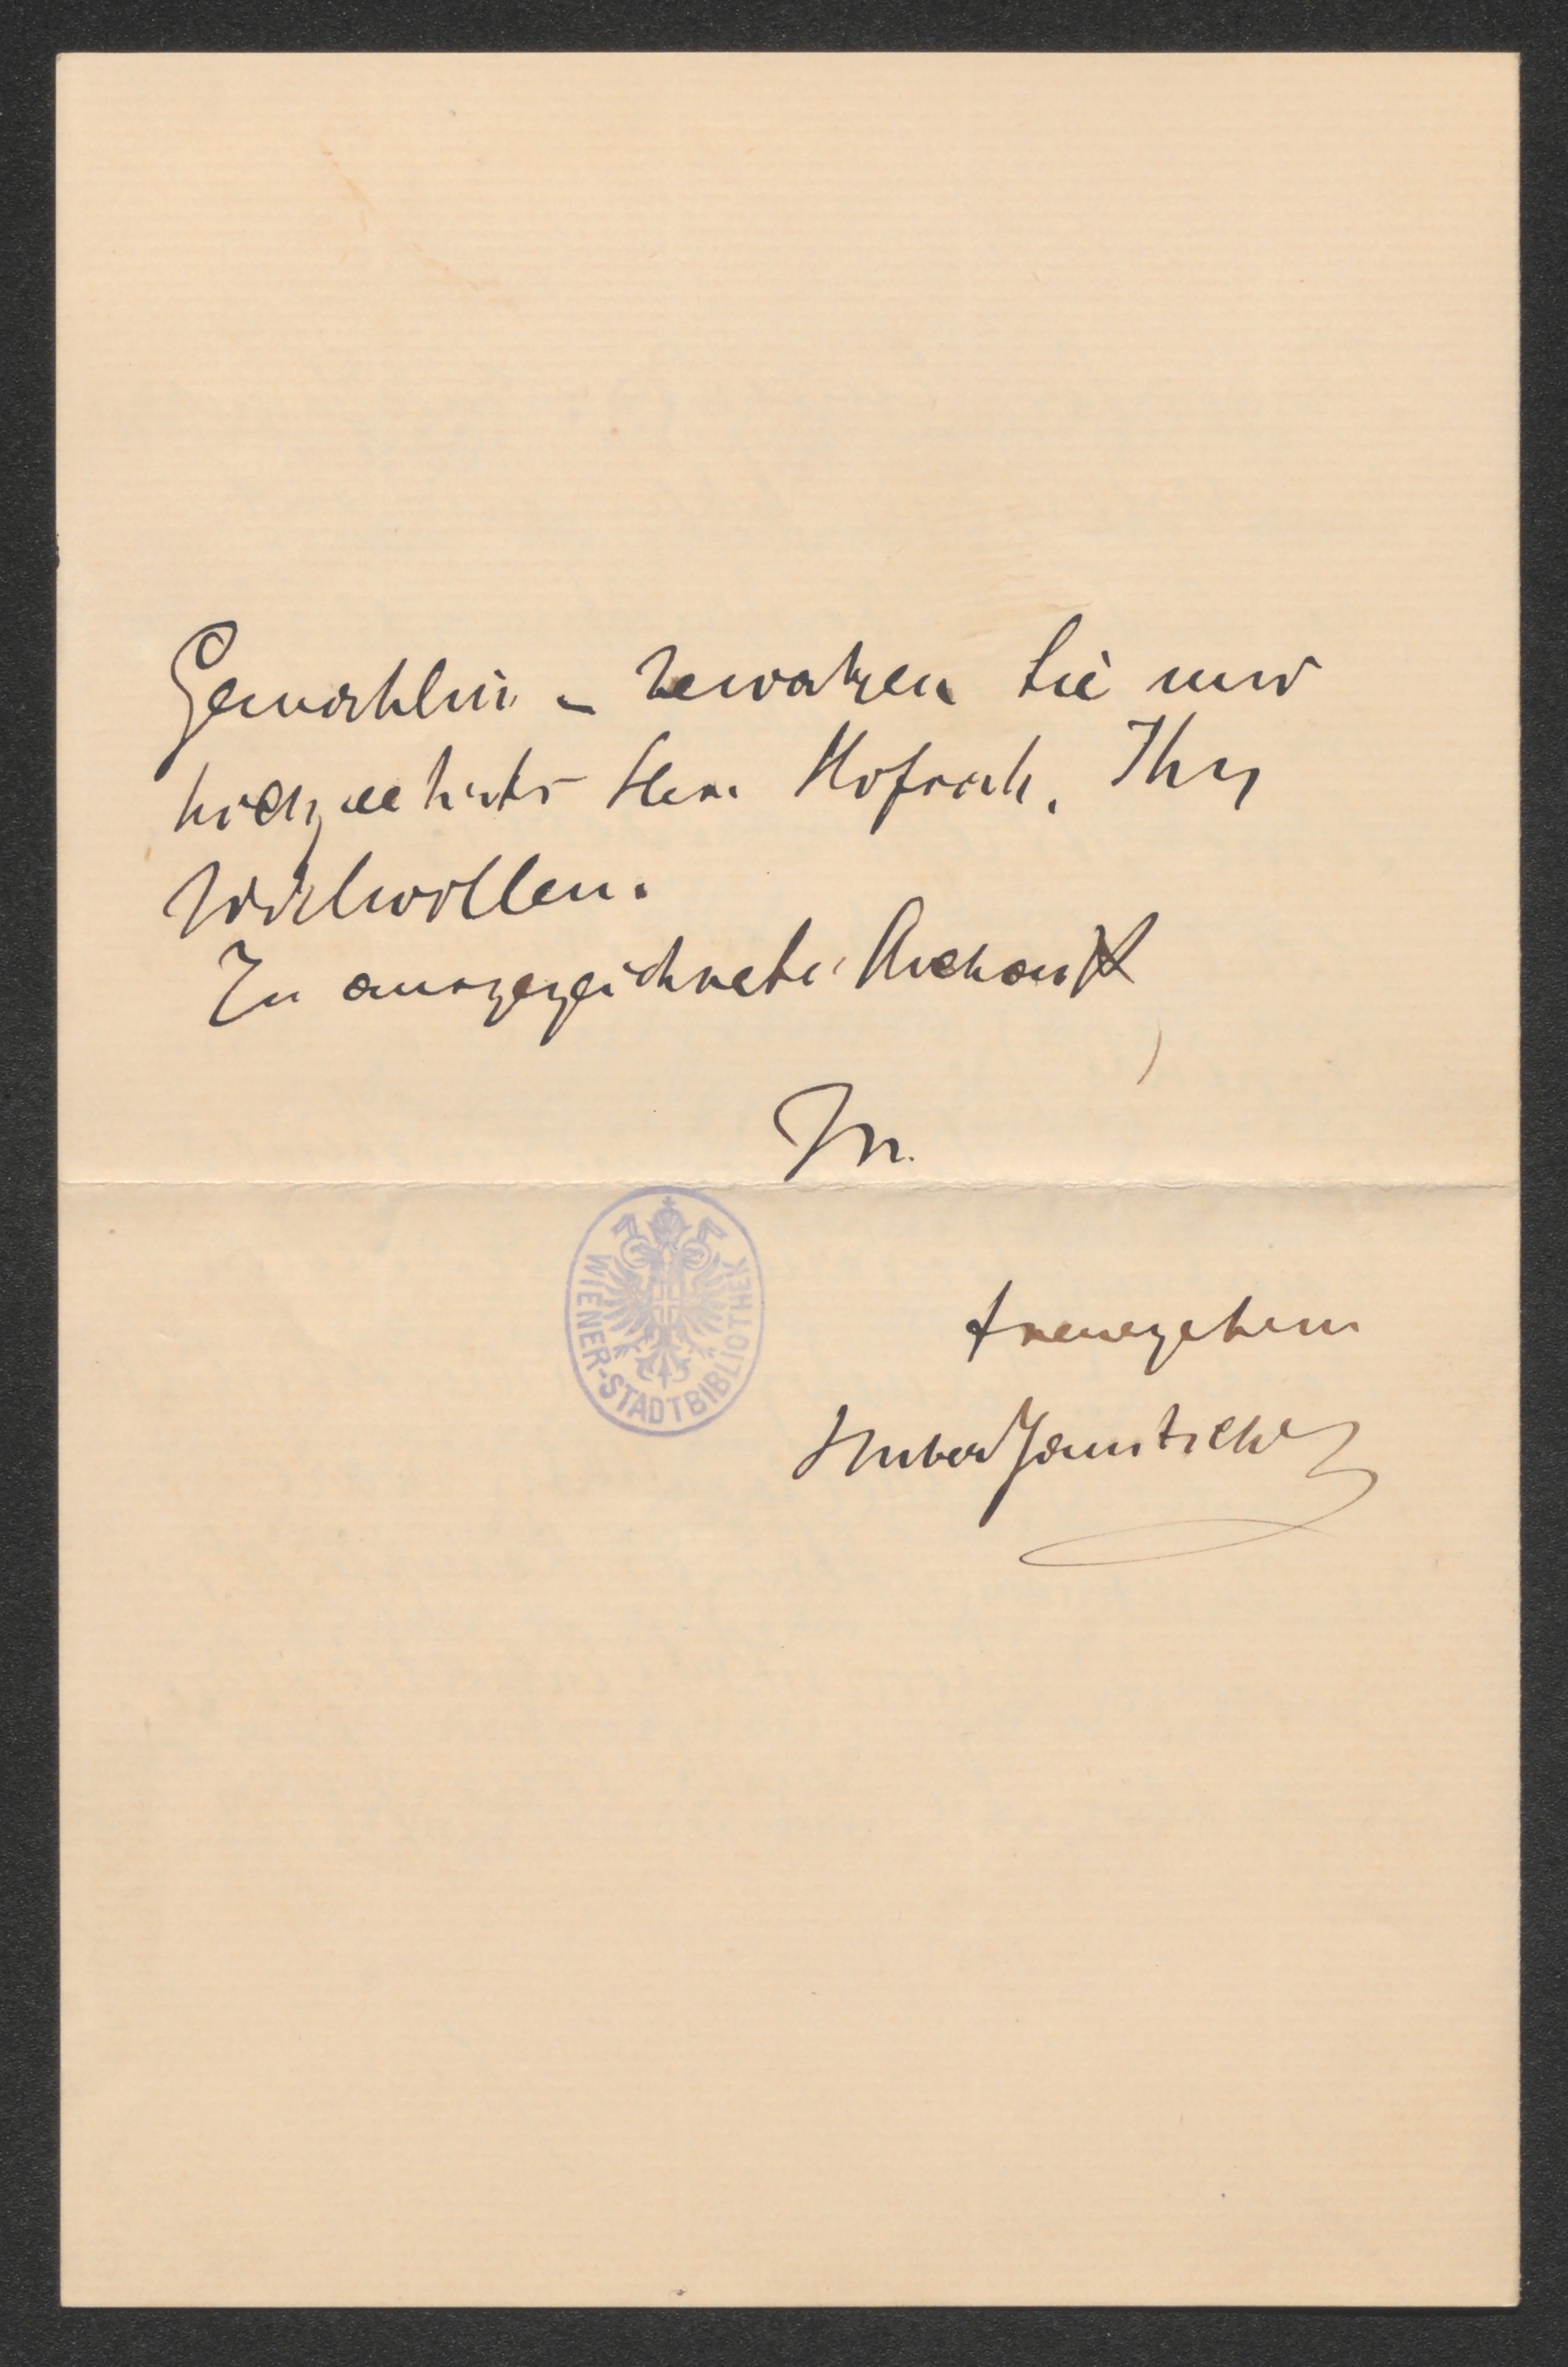 Gemahlin – bewahren Sie mir
hochgeehrter Herr Hofrath, Ihr
Wohlwollen.
In ausgezeichneter Hochacht
Ihr
WIENER-STADTBIBLIOTHEK
treuergebener
Hubert Janitschek